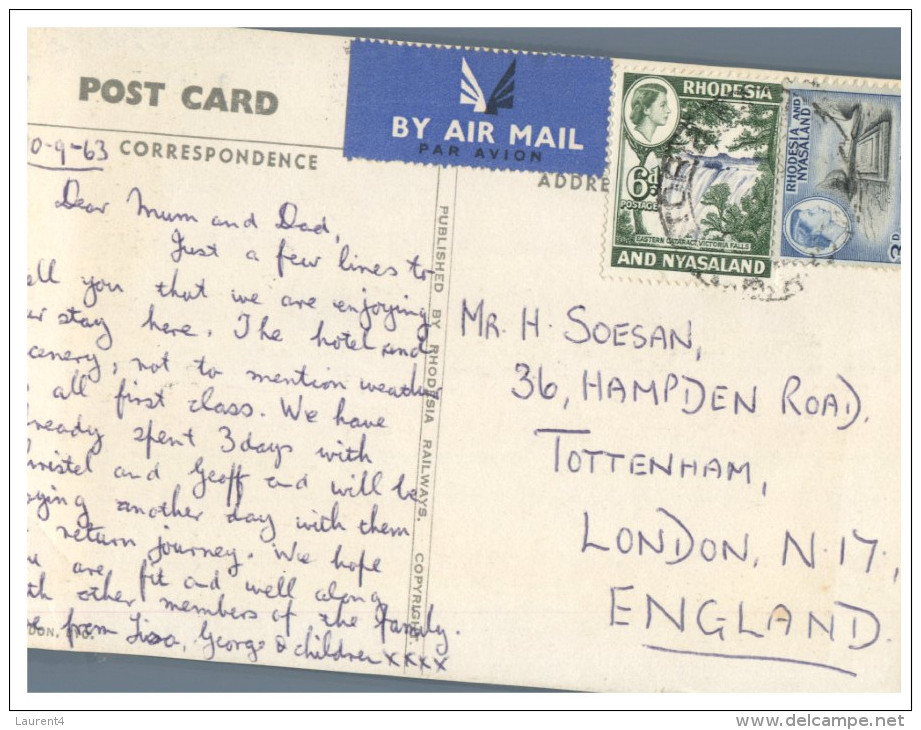 POST CARD
BY AIR MAIL
PAR AVION
CORRESPONDENCE
ADDRE
RHODESIA
6d
POSTAGE
EASTERN CATARACT, VICTORIA FALLS
AND NYASALAND
RHODESIA AND
NYASALAND
3D
0-9-63
Dear Mum and Dad,
Just a few lines to
ell you that we are enjoying
ur stay here. The hotel and
cenery, not to mention weather
all first class. We have
ready spent 3 days with
hristel and Geoff and will be
ying another day with them
return journey. We hope
ou are fit and well along
th other members of the family.
ve from Lissa, George & children xxxx
DON, ENG.
PUBLISHED BY RHODESIA RAILWAYS. COPYRIGHT.
MR. H. SOESAN,
36, HAMPDEN ROAD,
TOTTENHAM,
LONDON, N.17,
ENGLAND.
Laurent4
www.delcampe.net